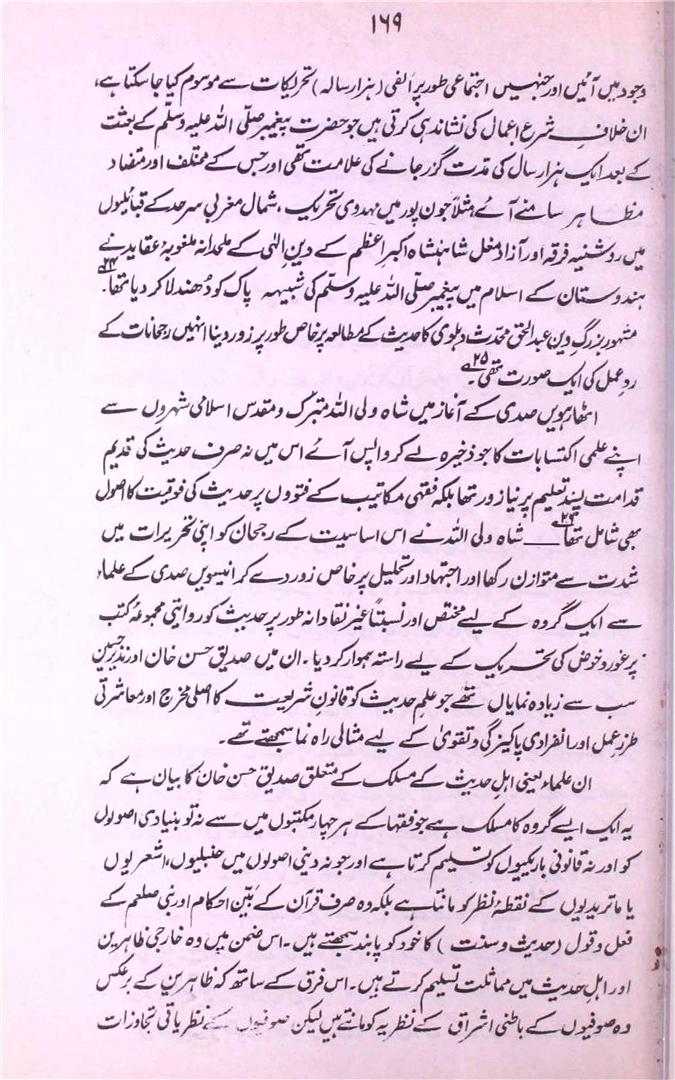 ۱۶۹
وجود میں آئیں اور جنہیں اجتماعی طور پر الفی (ہزار سالہ) تحریکات سے موسوم کیا جا سکتا ہے،
ان خلافِ شرع اعمال کی نشاندہی کرتی ہیں جو حضرت پیغمبر صلّی اللہ علیہ وسلّم کے بعثت
کے بعد ایک ہزار سال کی مدت گزر جانے کی علامت تھی اور جس کے مختلف اور متضاد
مظاہر سامنے آئے مثلاً جون پور میں مہدوی تحریک، شمال مغربی سرحد کے قبائلیوں
میں روشنیہ فرقہ اور آزاد مغل شاہنشاہ اکبر اعظم کے دینِ الٰہی کے ملحدانہ ملغوبۂ عقاید نے
ہندوستان کے اسلام میں پیغمبر صلّی اللہ علیہ وسلّم کی شبیہہ پاک کو دُھندلا کر دیا تھا۔۲۴
مشہور بزرگِ دین عبدالحق محدّث دہلوی کا حدیث کے مطالعہ پر خاص طور پر زور دینا انہیں رجحانات کے
ردِ عمل کی ایک صورت تھی۔۲۵
اٹھارہویں صدی کے آغاز میں شاہ ولی اللہ متبرک و مقدس اسلامی شہروں سے
اپنے علمی اکتسابات کا جو ذخیرہ لے کر واپس آئے اس میں نہ صرف حدیث کی قدیم
قدامت پسند تعلیم پر نیا زور تھا بلکہ فقہی مکاتیب کے فتووں پر حدیث کی فوقیت کا اصول
بھی شامل تھا۲۶ــــ شاہ ولی اللہ نے اس اساسیت کے رجحان کو اپنی تحریرات میں
شدت سے متوازن رکھا اور اجتہاد اور تحلیل پر خاص زور دے کر انیسویں صدی کے علماء
سے ایک گروہ کے لیے مختص اور نسبتاً غیر نقادانہ طور پر حدیث کو روایتی مجموعۂ کتب
پر غور و خوض کی تحریک کے لیے راستہ ہموار کر دیا۔ ان میں صدیق حسن خان اور نذیر حسین
سب سے زیادہ نمایاں تھے جو علمِ حدیث کو قانونِ شریعت کا اصلی مخرج اور معاشرتی
طرزِ عمل اور انفرادی پاکیزگی و تقویٰ کے لیے مثالی راہ نما سمجھتے تھے۔
ان علماء یعنی اہلِ حدیث کے مسلک کے متعلق صدیق حسن خان کا بیان ہے کہ
یہ ایک ایسے گروہ کا مسلک ہے جو فقہا کے ہر چہار مکتبوں میں سے نہ تو بنیادی اصولوں
کو اور نہ قانونی باریکیوں کو تسلیم کرتا ہے اور جو نہ دینی اصولوں میں حنبلیوں، اشعریوں
یا ماتریدیوں کے نقطۂ نظر کو مانتا ہے بلکہ وہ صرف قرآن کے بیّن احکام اور نبی صلعم کے
فعل و قول (حدیث و سنت) کا خود کو پابند سمجھتے ہیں۔ اس ضمن میں وہ خارجی ظاہرین
اور اہلِ حدیث میں مماثلت تسلیم کرتے ہیں۔ اس فرق کے ساتھ کہ ظاہرین کے برعکس
وہ صوفیوں کے باطنی اشراق کے نظریہ کو مانتے ہیں لیکن صوفیوں کے نظریاتی تجاوزات